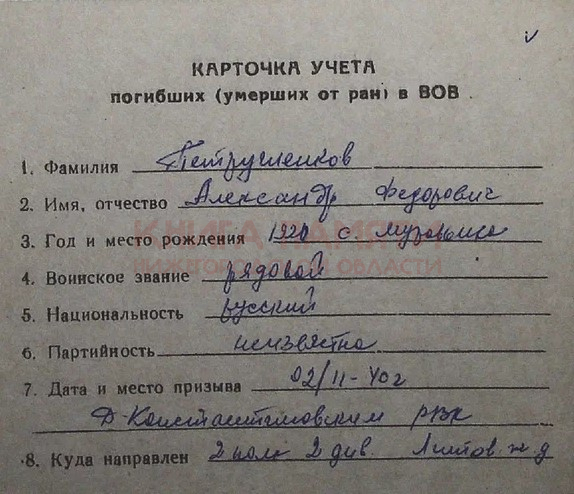 КАРТОЧКА УЧЕТА
погибших (умерших от ран) в ВОВ
1. Фамилия
2. Имя, отчество Александр Федорович
3. Год и место рождения 1920 с.
КНИГА ПАМЯТИ
НИЖЕГОРОДСКОЙ ОБЛАСТИ
4. Воинское звание рядовой
5. Национальность русский
6. Партийность неизвестно
7. Дата и место призыва 02/II-40г
Д-Константиновским РВК
8. Куда направлен 2 полк 2 див. ж.д